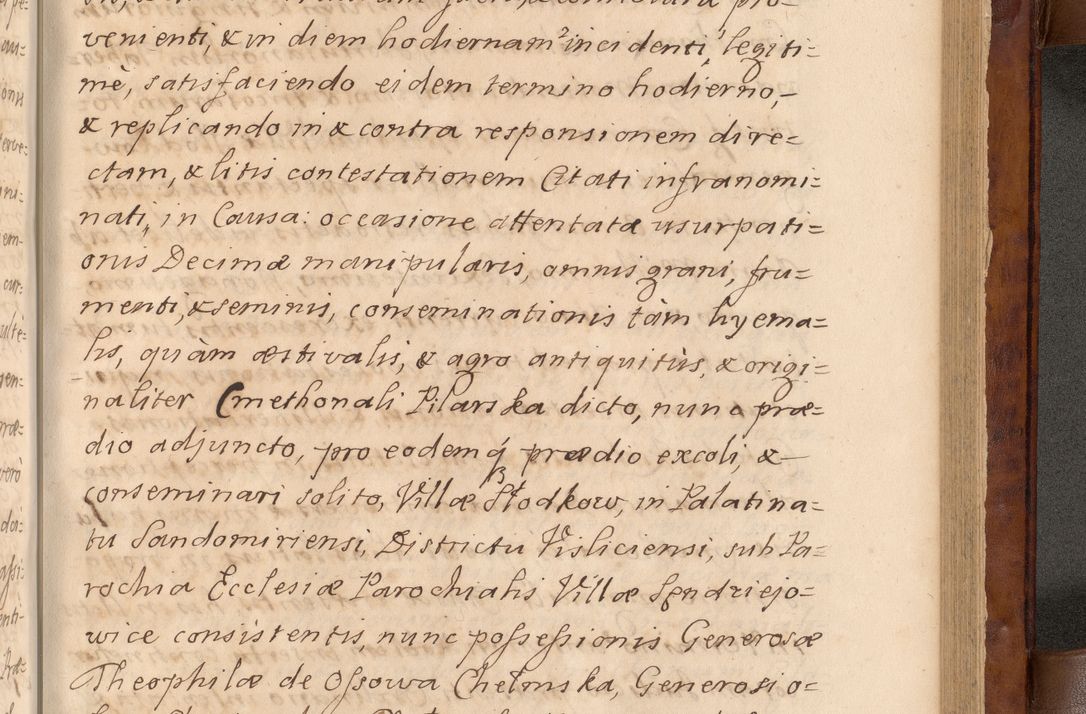 venienti, & in diem hodiernam ²incidenti,¹ legiti=
mè, satisfaciendo eidem termino hodierno,-
& replicando in & contra responsionem dire=
ctam, & litis contestationem Citati infranomi=
nati, in Causa: occasione attentatæ usurpati=
onis Decimæ manipularis, omnis grani, fru=
menti, & seminis, conseminationis tàm hyema=
lis, quàm æstivalis, & agro antiquitùs, & origi=
naliter Cmethonali Pilarska dicto, nunc præ=
dio adjuncto, pro eodemq́ prædio excoli, &
conseminari solito, Villæ Słodkow, in Palatina=
tu Sandomiriensi, Districtu Visliciensi, sub Pa=
rochia Ecclesiæ Parochialis Villæ Sendziejo=
wice consistentis, nunc possessionis Generosæ
Theophilæ de Ossowa Chełmska, Generosi o=